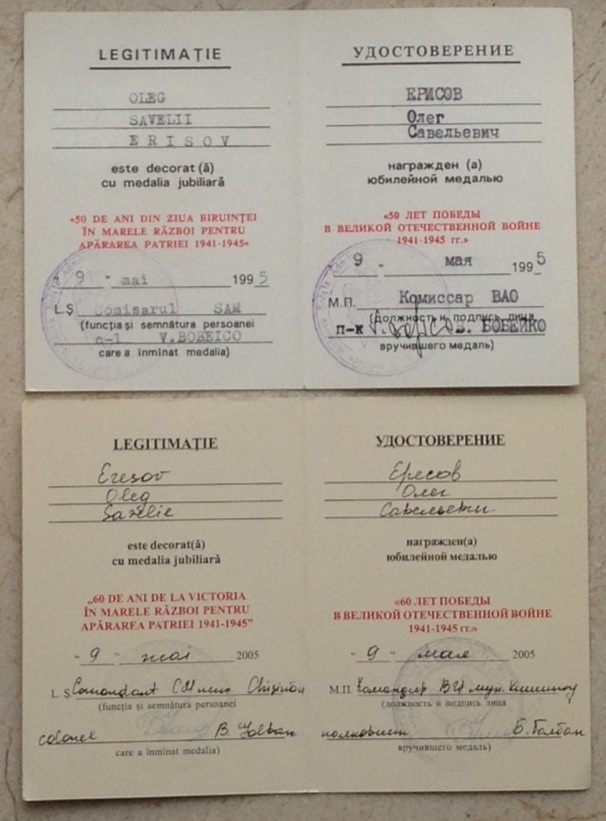 LEGITIMAȚIE
OLEG
SAVELII
ERISOV
este decorat (ă)
cu medalia jubiliară
«50 DE ANI DIN ZIUA BIRUINȚEI
ÎN MARELE RĂZBOI PENTRU
APĂRAREA PATRIEI 1941-1945»
9 - mai 1995
L.Ș Comisarul SAM
(funcția și semnătura persoanei
c-l V.BOBEICO
care a înmînat medalia)
УДОСТОВЕРЕНИЕ
ЕРИСОВ
Олег
Савельевич
награжден (а)
юбилейной медалью
«50 ЛЕТ ПОБЕДЫ
В ВЕЛИКОЙ ОТЕЧЕСТВЕННОЙ ВОЙНЕ
1941-1945 гг.»
9 - мая 1995
М.П. Комиссар ВАО
(должность и подпись лица,
п-к В. БОБЕЙКО
вручившего медаль)
LEGITIMAȚIE
Eresov
Oleg
Savelie
este decorat(ă)
cu medalia jubiliară
„60 DE ANI DE LA VICTORIA
ÎN MARELE RĂZBOI PENTRU
APĂRAREA PATRIEI 1941-1945”
- 9 - mai 2005
L.Ș Comandant CM mun. Chișinău
(funcția și semnătura persoanei
colonel B. Golban
care a înmînat medalia)
УДОСТОВЕРЕНИЕ
Ересов
Олег
Савельевич
награжден(а)
юбилейной медалью
«60 ЛЕТ ПОБЕДЫ
В ВЕЛИКОЙ ОТЕЧЕСТВЕННОЙ ВОЙНЕ
1941-1945 гг.»
- 9 - мая 2005
М.П. Командир ВЦ мун. Кишинэу
(должность и подпись лица
полковник Б. Голбан
вручившего медаль)